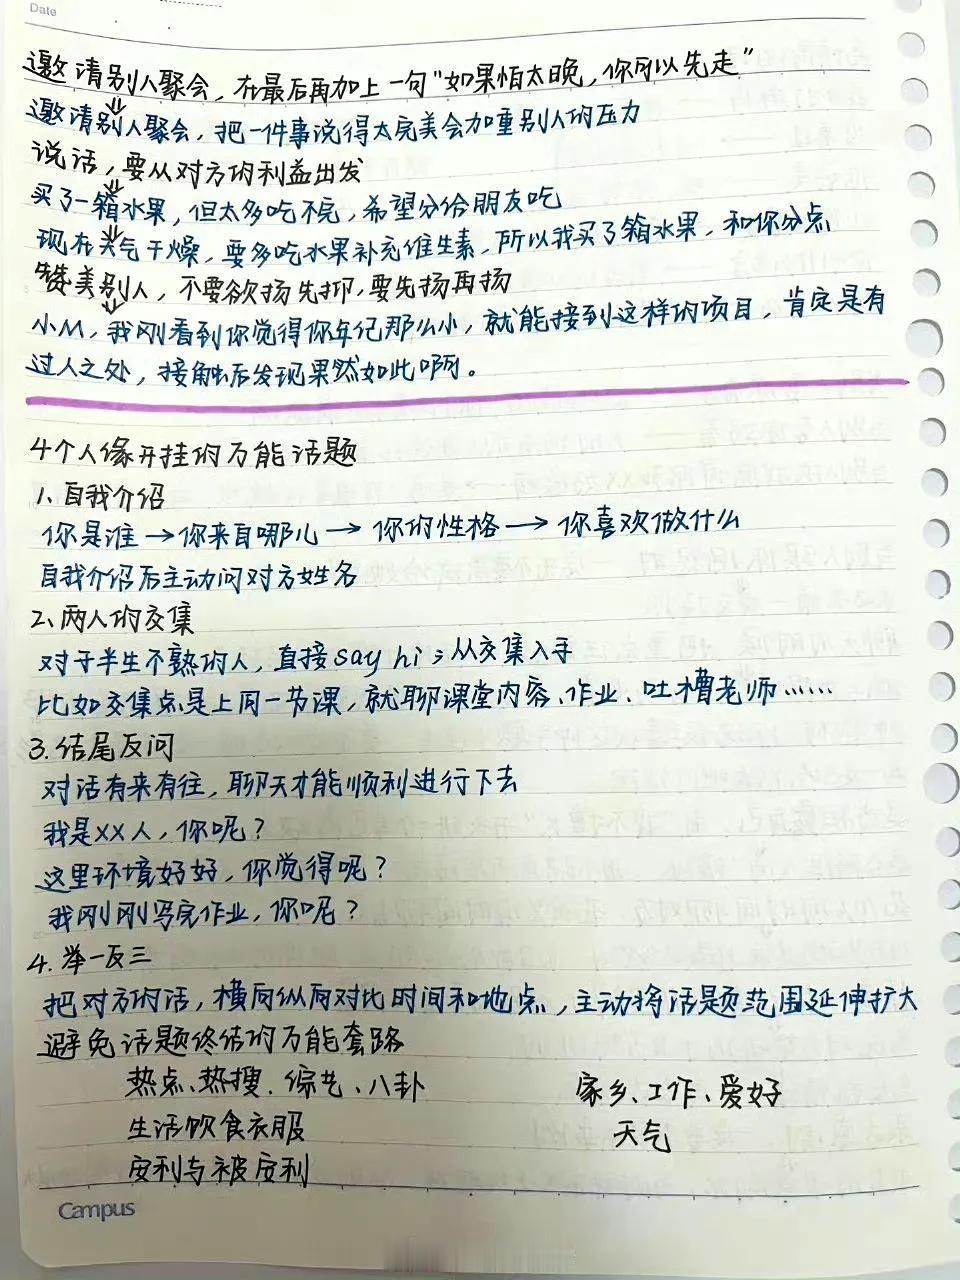 Date
邀请别人聚会，在最后再加上一句“如果怕太晚，你可以先走”
邀请别人聚会，把一件事说得太完美会加重别人的压力
说话，要从对方的利益出发
买了一箱水果，但太多吃不完，希望分给朋友吃
现在天气干燥，要多吃水果补充维生素，所以我买了箱水果，和你分点
赞美别人，不要欲扬先抑，要先扬再扬
小M，我刚看到你觉得你年纪那么小，就能接到这样的项目，肯定是有
过人之处，接触后发现果然如此啊。
4个人缘开挂的万能话题
1、自我介绍
你是谁→你来自哪儿→你的性格→你喜欢做什么
自我介绍后主动问对方姓名
2、两人的交集
对于半生不熟的人，直接say hi；从交集入手
比如交集点是上同一节课，就聊课堂内容、作业、吐槽老师……
3. 结尾反问
对话有来有往，聊天才能顺利进行下去
我是XX人，你呢？
这里环境好好，你觉得呢？
我刚刚写完作业，你呢？
4. 举一反三
把对方的话，横向纵向对比时间和地点，主动将话题范围延伸扩大
避免话题终结的万能套路
热点、热搜、综艺、八卦 家乡、工作、爱好
生活饮食衣服 天气
安利与被安利
Campus